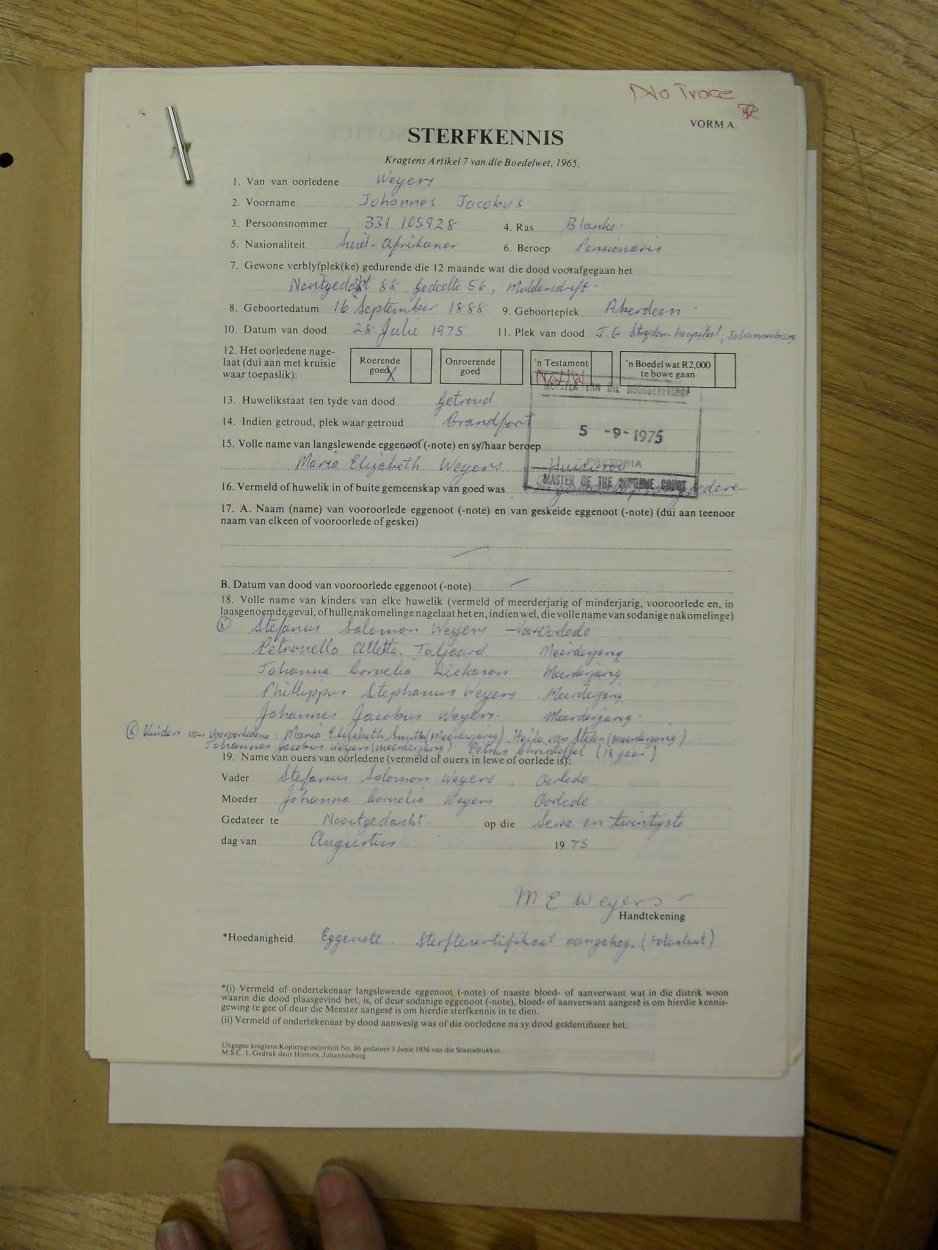 No Trace
VORM A.
STERFKENNIS
Kragtens Artikel 7 van die Boedelwet, 1965.
1. Van van oorledene Weyers
2. Voorname Johannes Jacobus
3. Persoonsnommer 331 165928 4. Ras Blanke.
5. Nasionaliteit Suid-Afrikaner 6. Beroep Pensionaris
7. Gewone verblyfplek(ke) gedurende die 12 maande wat die dood voorafgegaan het
88, Gedeelte 56, Muldersdrift.
8. Geboortedatum 16 September 1888 9. Geboorteplek Aberdeen
10. Datum van dood 28 Julie 1975 11. Plek van dood J.G Strydom hospitaal, Johannesburg
12. Het oorledene nage-laat (dui aan met kruisie waar toepaslik): Roerende goed X Onroerende goed 'n Testament 'n Boedel wat R2,000 te bowe gaan
MEESTER VAN DIE HOOGGEREGSHOF
13. Huwelikstaat ten tyde van dood Getroud
14. Indien getroud, plek waar getroud Brandfort
5 -9- 1975
15. Volle name van langslewende eggenoot (-note) en sy/haar beroep
PRETORIA
Maria Elizabeth Weyers Huisvrou
MASTER OF THE SUPREME COURT
16. Vermeld of huwelik in of buite gemeenskap van goed was
17. A. Naam (name) van vooroorlede eggenoot (-note) en van geskeide eggenoot (-note) (dui aan teenoor
naam van elkeen of vooroorlede of geskei)
B. Datum van dood van vooroorlede eggenoot (-note)
18. Volle name van kinders van elke huwelik (vermeld of meerderjarig of minderjarig, vooroorlede en, in
laasgenoemde geval, of hulle nakomelinge nagelaat het en, indien wel, die volle name van sodanige nakomelinge)
Stefanus Salomon Weyers - Vooroorlede
Petronella Aletta Taljaard Meerderjarig
Johanna Cornelia Meerderjarig
Phillippus Stephanus Weyers Meerderjarig
Johannes Jacobus Weyers. Meerderjarig.
Kinders van Vooroorledene: Maria Elizabeth Smith (Meerderjarig) van Staden (meerderjarig)
Johannes Jacobus Weyers (meerderjarig). Petrus Christoffel (18 jaar)
19. Name van ouers van oorledene (vermeld of ouers in lewe of oorlede is):
Vader Stefanus Salomon Weyers. Oorlede.
Moeder Johanna Cornelia Weyers Oorlede.
Gedateer te Nooitgedacht. op die Sewe en twintigste
dag van Augustus 19 75
M E Weyers
Handtekening
*Hoedanigheid Eggenote. Sterftesertifikaat aangeheg. (Fotostaat)
*(i) Vermeld of ondertekenaar langslewende eggenoot (-note) of naaste bloed- of aanverwant wat in die distrik woon
waarin die dood plaasgevind het, is, of deur sodanige eggenoot (-note), bloed- of aanverwant aangesê is om hierdie kennis-
gewing te gee of deur die Meester aangesê is om hierdie sterfkennis in te dien.
(ii) Vermeld of ondertekenaar by dood aanwesig was of die oorledene na sy dood geïdentifiseer het.
Uitgegee kragtens Kopiereg-outoriteit No. 86 gedateer 3 Junie 1936 van die Staatsdrukker.
M.S.C. 1. Gedruk deur Hortors, Johannesburg.